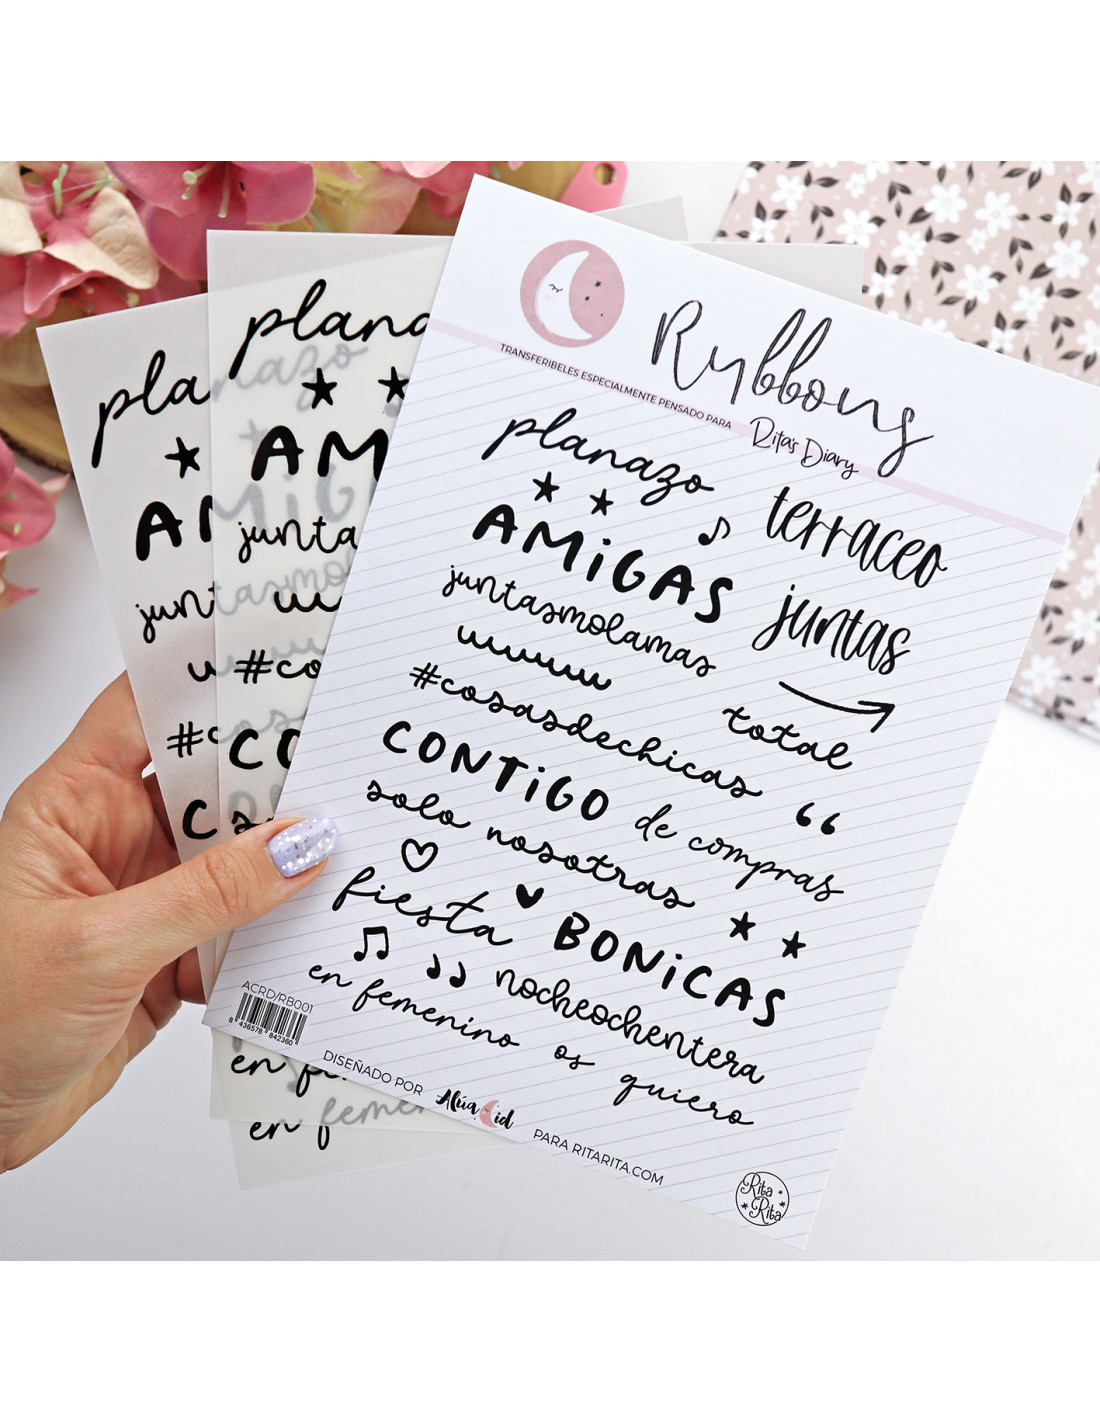 Rybbons
TRANSFERIBELES ESPECIALMENTE PENSADO PARA
Rita's Diary
planazo
terraceo
AMiGAS
juntas
juntasmolamas
#cosasdechicas
total
CONTiGO
de compras
solo nosotras
fiesta
BONiCAS
nocheochentera
en femenino
os quiero
ACRD/RB001
8 436578 842360
DISEÑADO POR
Alúa Cid
PARA RITARITA.COM
Rita Rita
pla
AM
junta
#co
CO
en f
planazo
AMiG
juntasmola
#c
C
en femen
en f